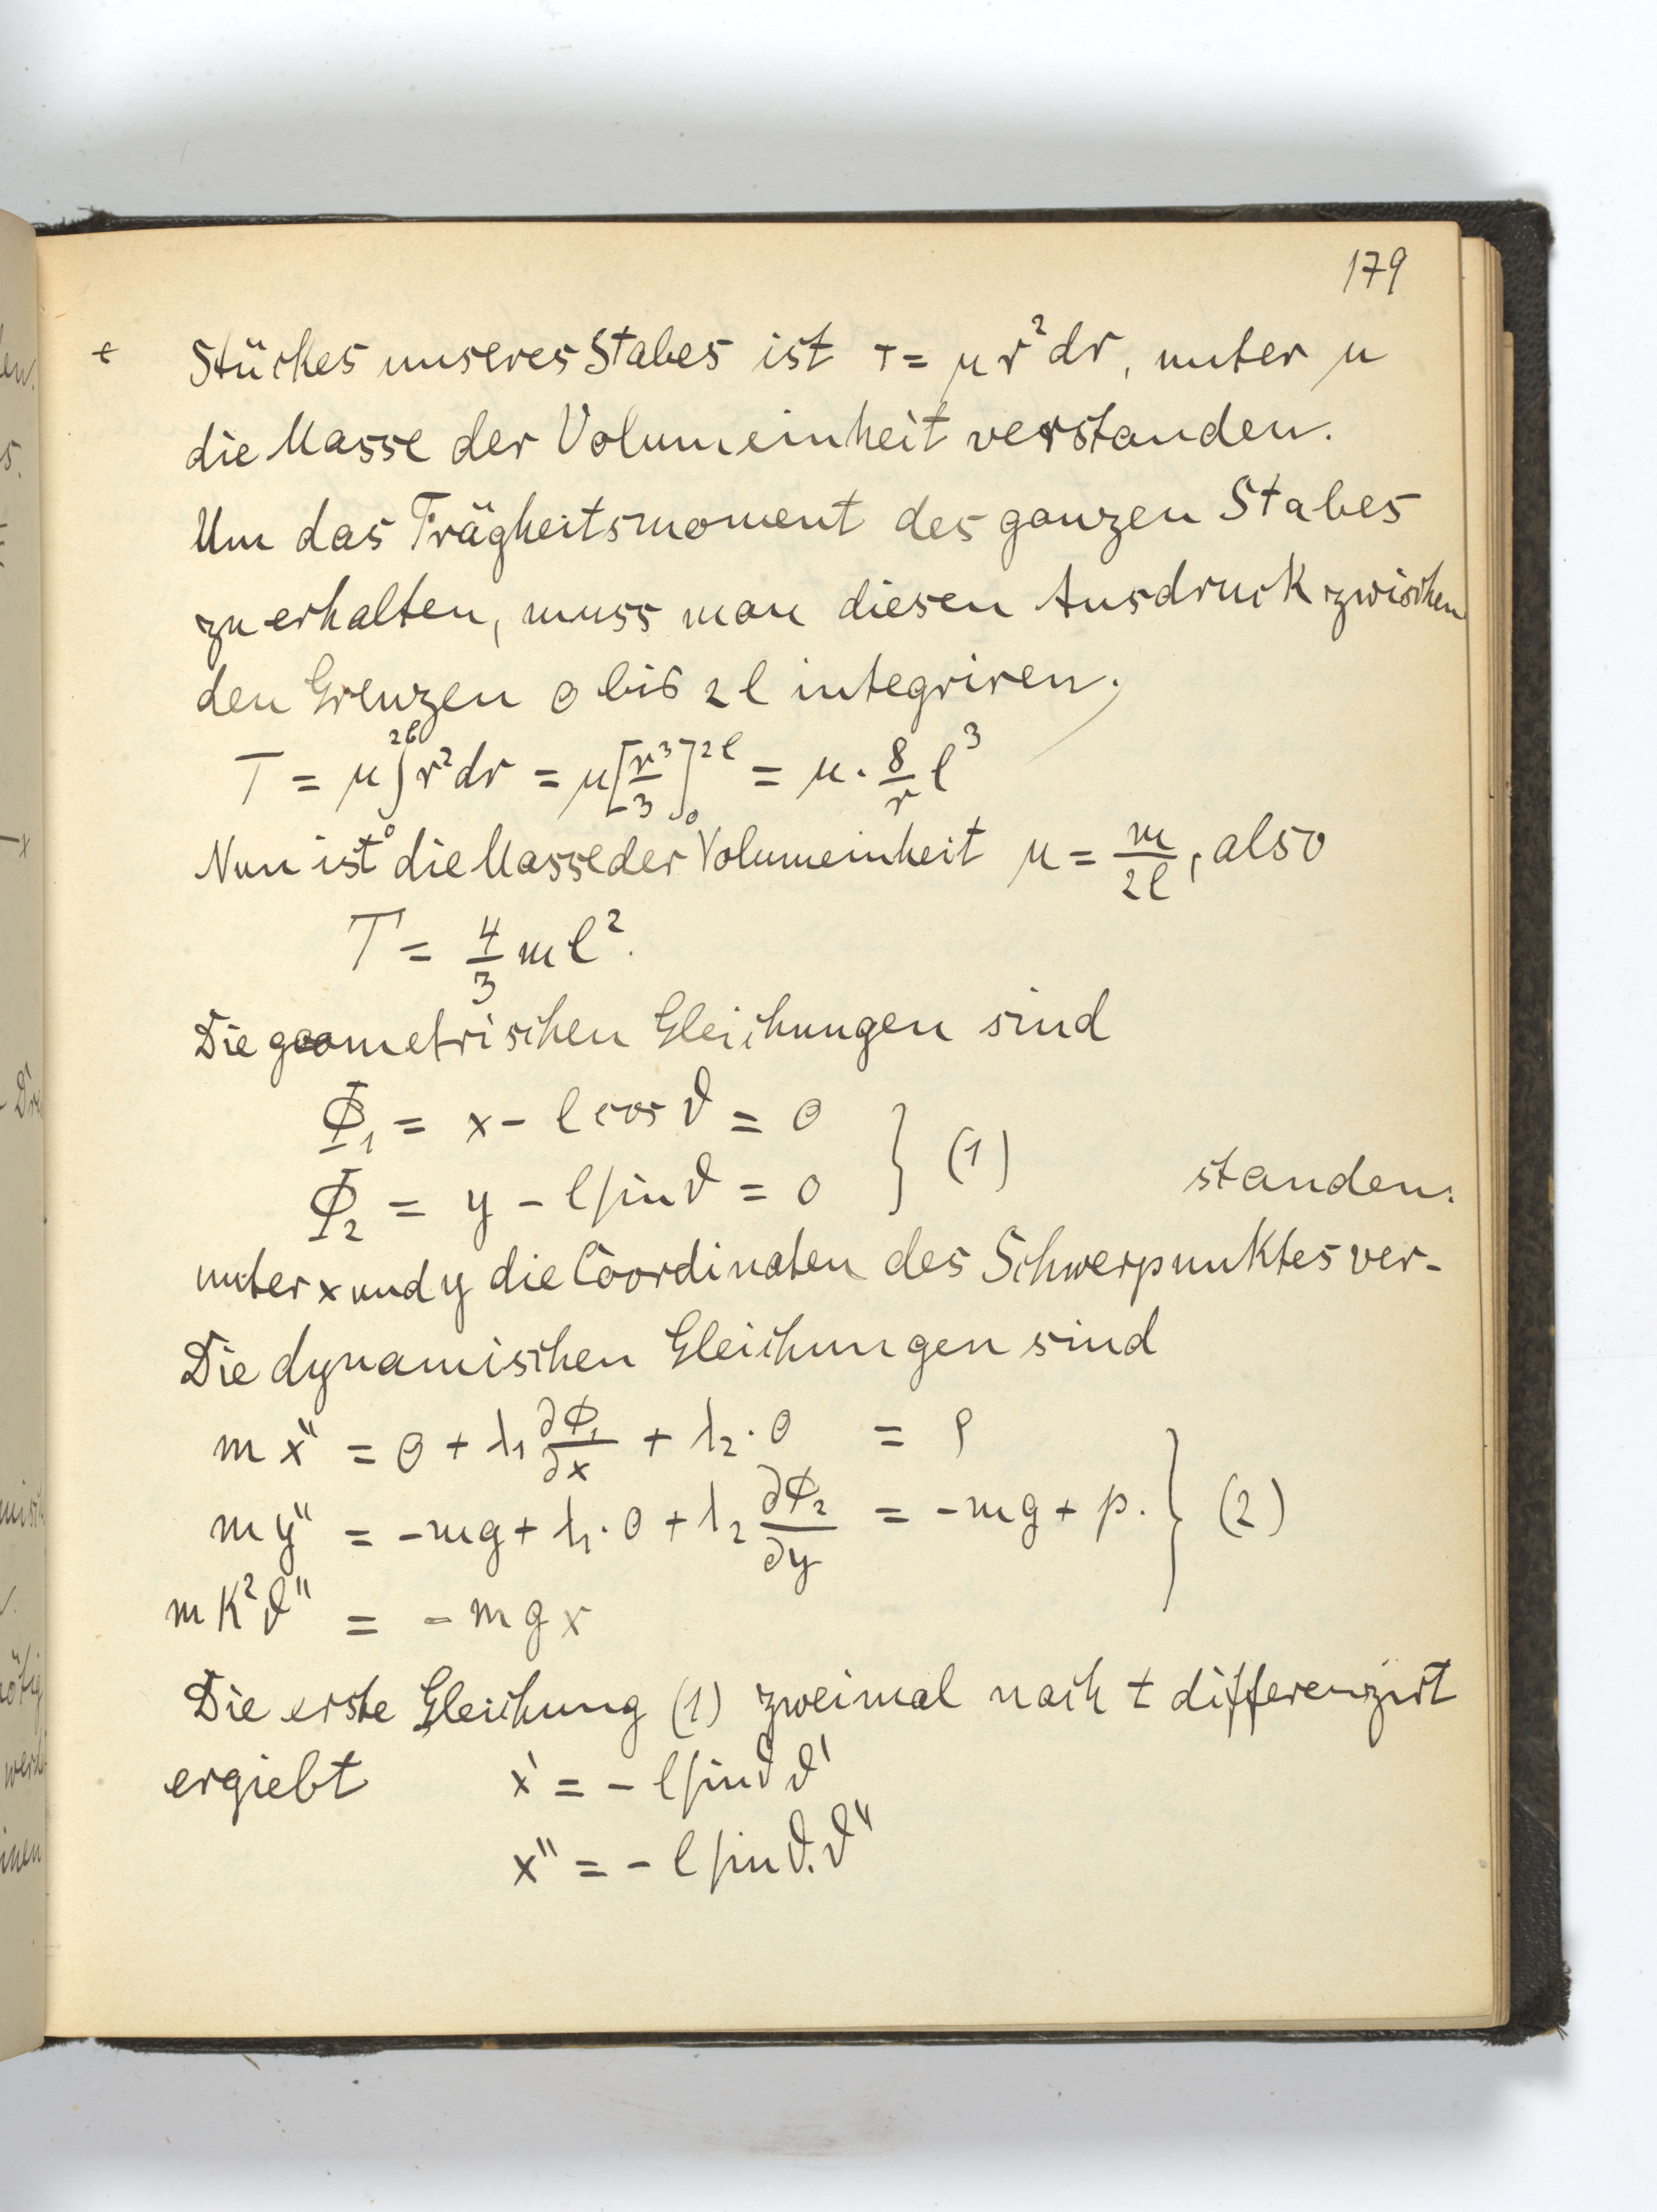 179
Stückes unseres Stabes ist τ = μ r² dr, unter μ
die Masse der Volumeinheit verstanden.
Um das Trägheitsmoment des ganzen Stabes
zu erhalten, muss man diesen Ausdruck zwischen
den Grenzen 0 bis 2l integriren.
T = μ ∫₀²ˡ r² dr = μ [r³/3]₀²ˡ = μ · 8/r l³
Nun ist die Masse der Volumeinheit μ = m/2l, also
T = 4/3 m l².
Die geometrischen Gleichungen sind
Φ₁ = x - l cos ϑ = 0
Φ₂ = y - l sin ϑ = 0 } (1)
standen.
unter x und y die Coordinaten des Schwerpunktes ver-
Die dynamischen Gleichungen sind
m x'' = 0 + λ₁ ∂Φ₁/∂x + λ₂ · 0 = ρ
m y'' = -mg + λ₁ · 0 + λ₂ ∂Φ₂/∂y = -mg + p. } (2)
m K² ϑ'' = - m g x
Die erste Gleichung (1) zweimal nach t differenzirt
ergiebt x' = - l sin ϑ ϑ'
x'' = - l sin ϑ. ϑ''